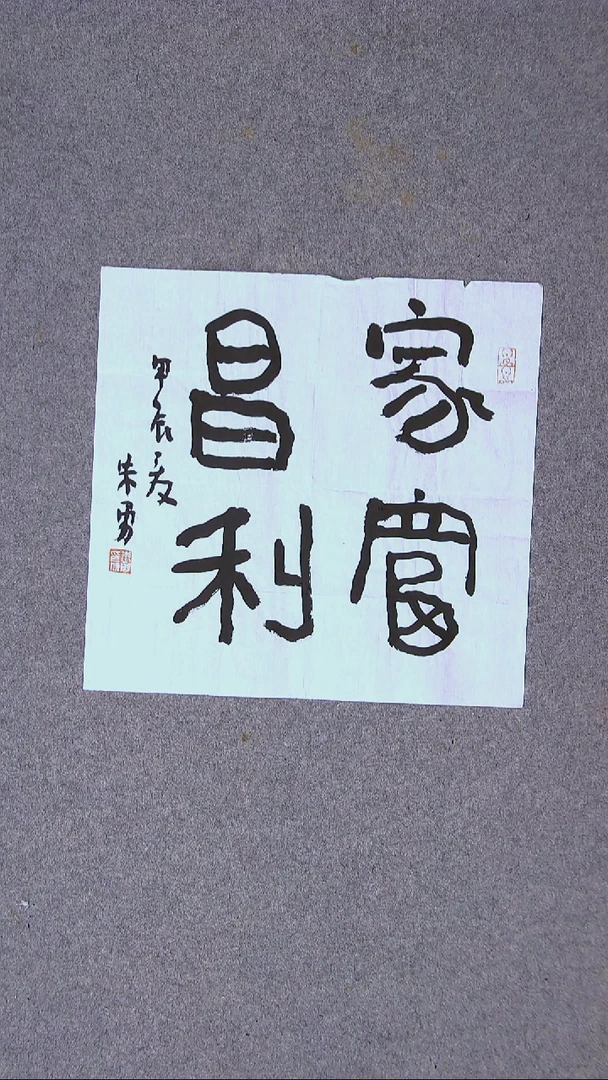 家富
昌利
甲辰夏
朱勇